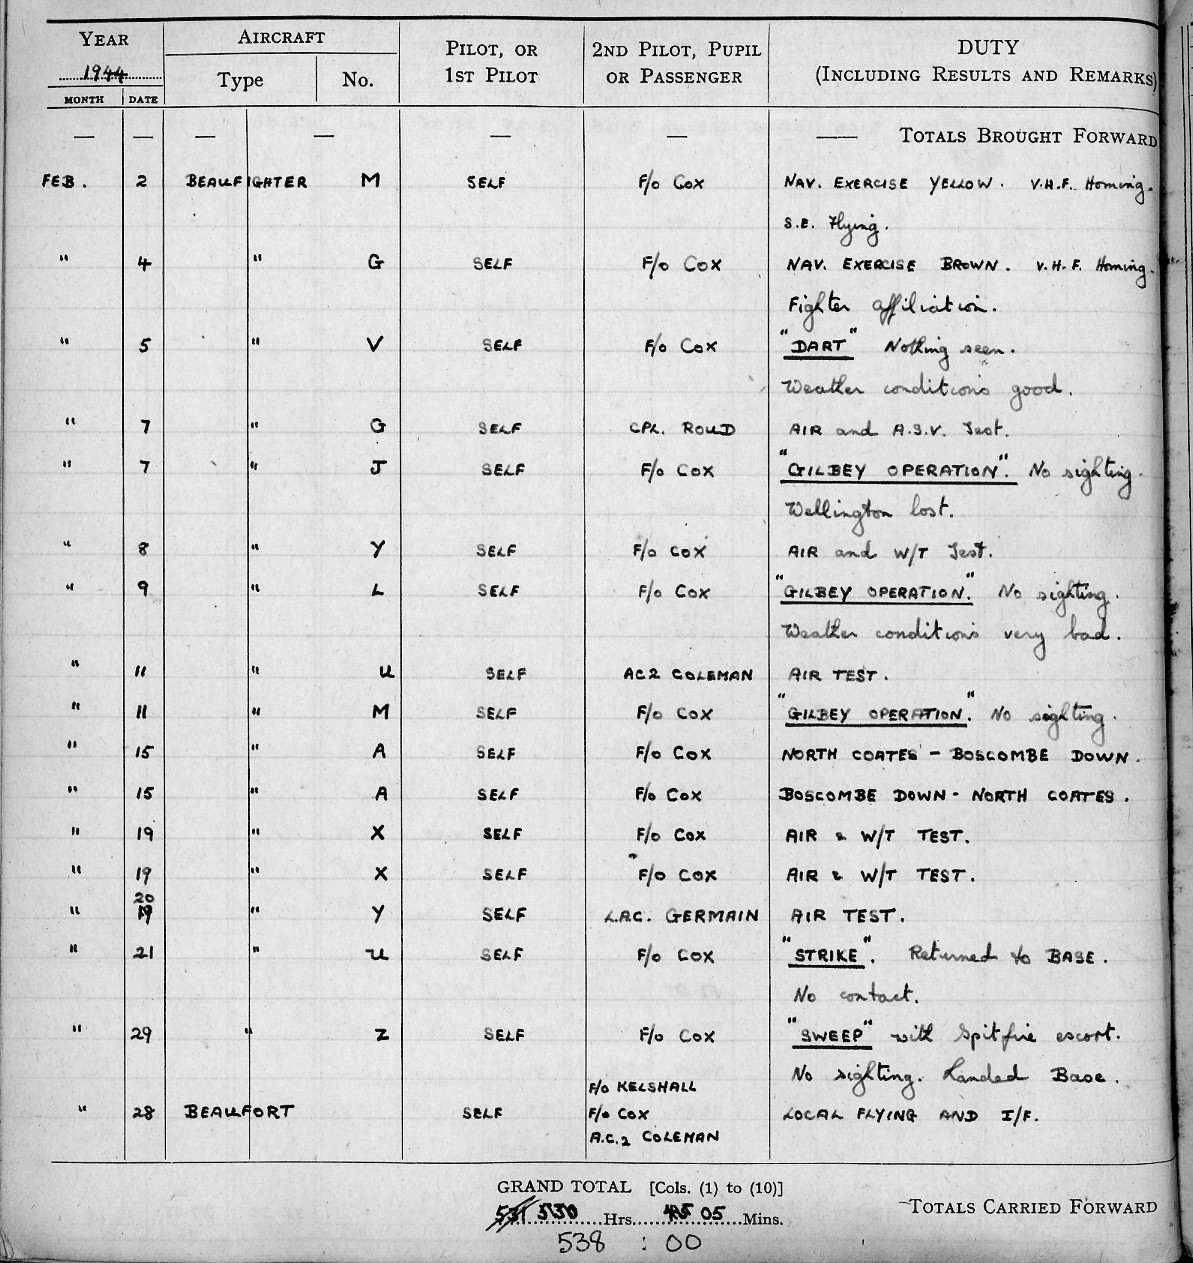 YEAR AIRCRAFT PILOT, OR 2ND PILOT, PUPIL DUTY
1944 Type No. 1ST PILOT OR PASSENGER (INCLUDING RESULTS AND REMARKS)
MONTH DATE
— — — — — — — TOTALS BROUGHT FORWARD
FEB. 2 BEAUFIGHTER M SELF F/o COX NAV. EXERCISE YELLOW. V.H.F. Homing.
S.E. Flying.
" 4 " G SELF F/o COX NAV. EXERCISE BROWN. V.H.F. Homing.
Fighter affiliation.
" 5 " V SELF F/o COX "DART" Nothing seen.
Weather conditions good.
" 7 " G SELF CPL. ROUD AIR and A.S.V. Test.
" 7 " J SELF F/o COX "GILBEY OPERATION". No sighting.
Wellington lost.
" 8 " Y SELF F/o COX AIR and W/T Test.
" 9 " L SELF F/o COX "GILBEY OPERATION". No sighting.
Weather conditions very bad.
" 11 " U SELF AC2 COLEMAN AIR TEST.
" 11 " M SELF F/o COX "GILBEY OPERATION". No sighting.
" 15 " A SELF F/o COX NORTH COATES - BOSCOMBE DOWN.
" 15 " A SELF F/o COX BOSCOMBE DOWN - NORTH COATES.
" 19 " X SELF F/o COX AIR & W/T TEST.
" 19 " X SELF F/o COX AIR & W/T TEST.
20
" 19 " Y SELF L.A.C. GERMAIN AIR TEST.
" 21 " U SELF F/o COX "STRIKE". Returned to BASE.
No contact.
" 29 " Z SELF F/o COX "SWEEP" with Spitfire escort.
No sighting. Landed Base.
F/o KELSHALL
" 28 BEAUFORT SELF F/o COX LOCAL FLYING AND I/F.
A.C.2 COLEMAN
GRAND TOTAL [Cols. (1) to (10)]
531 530 Hrs. 45 05 Mins. TOTALS CARRIED FORWARD
538 : 00